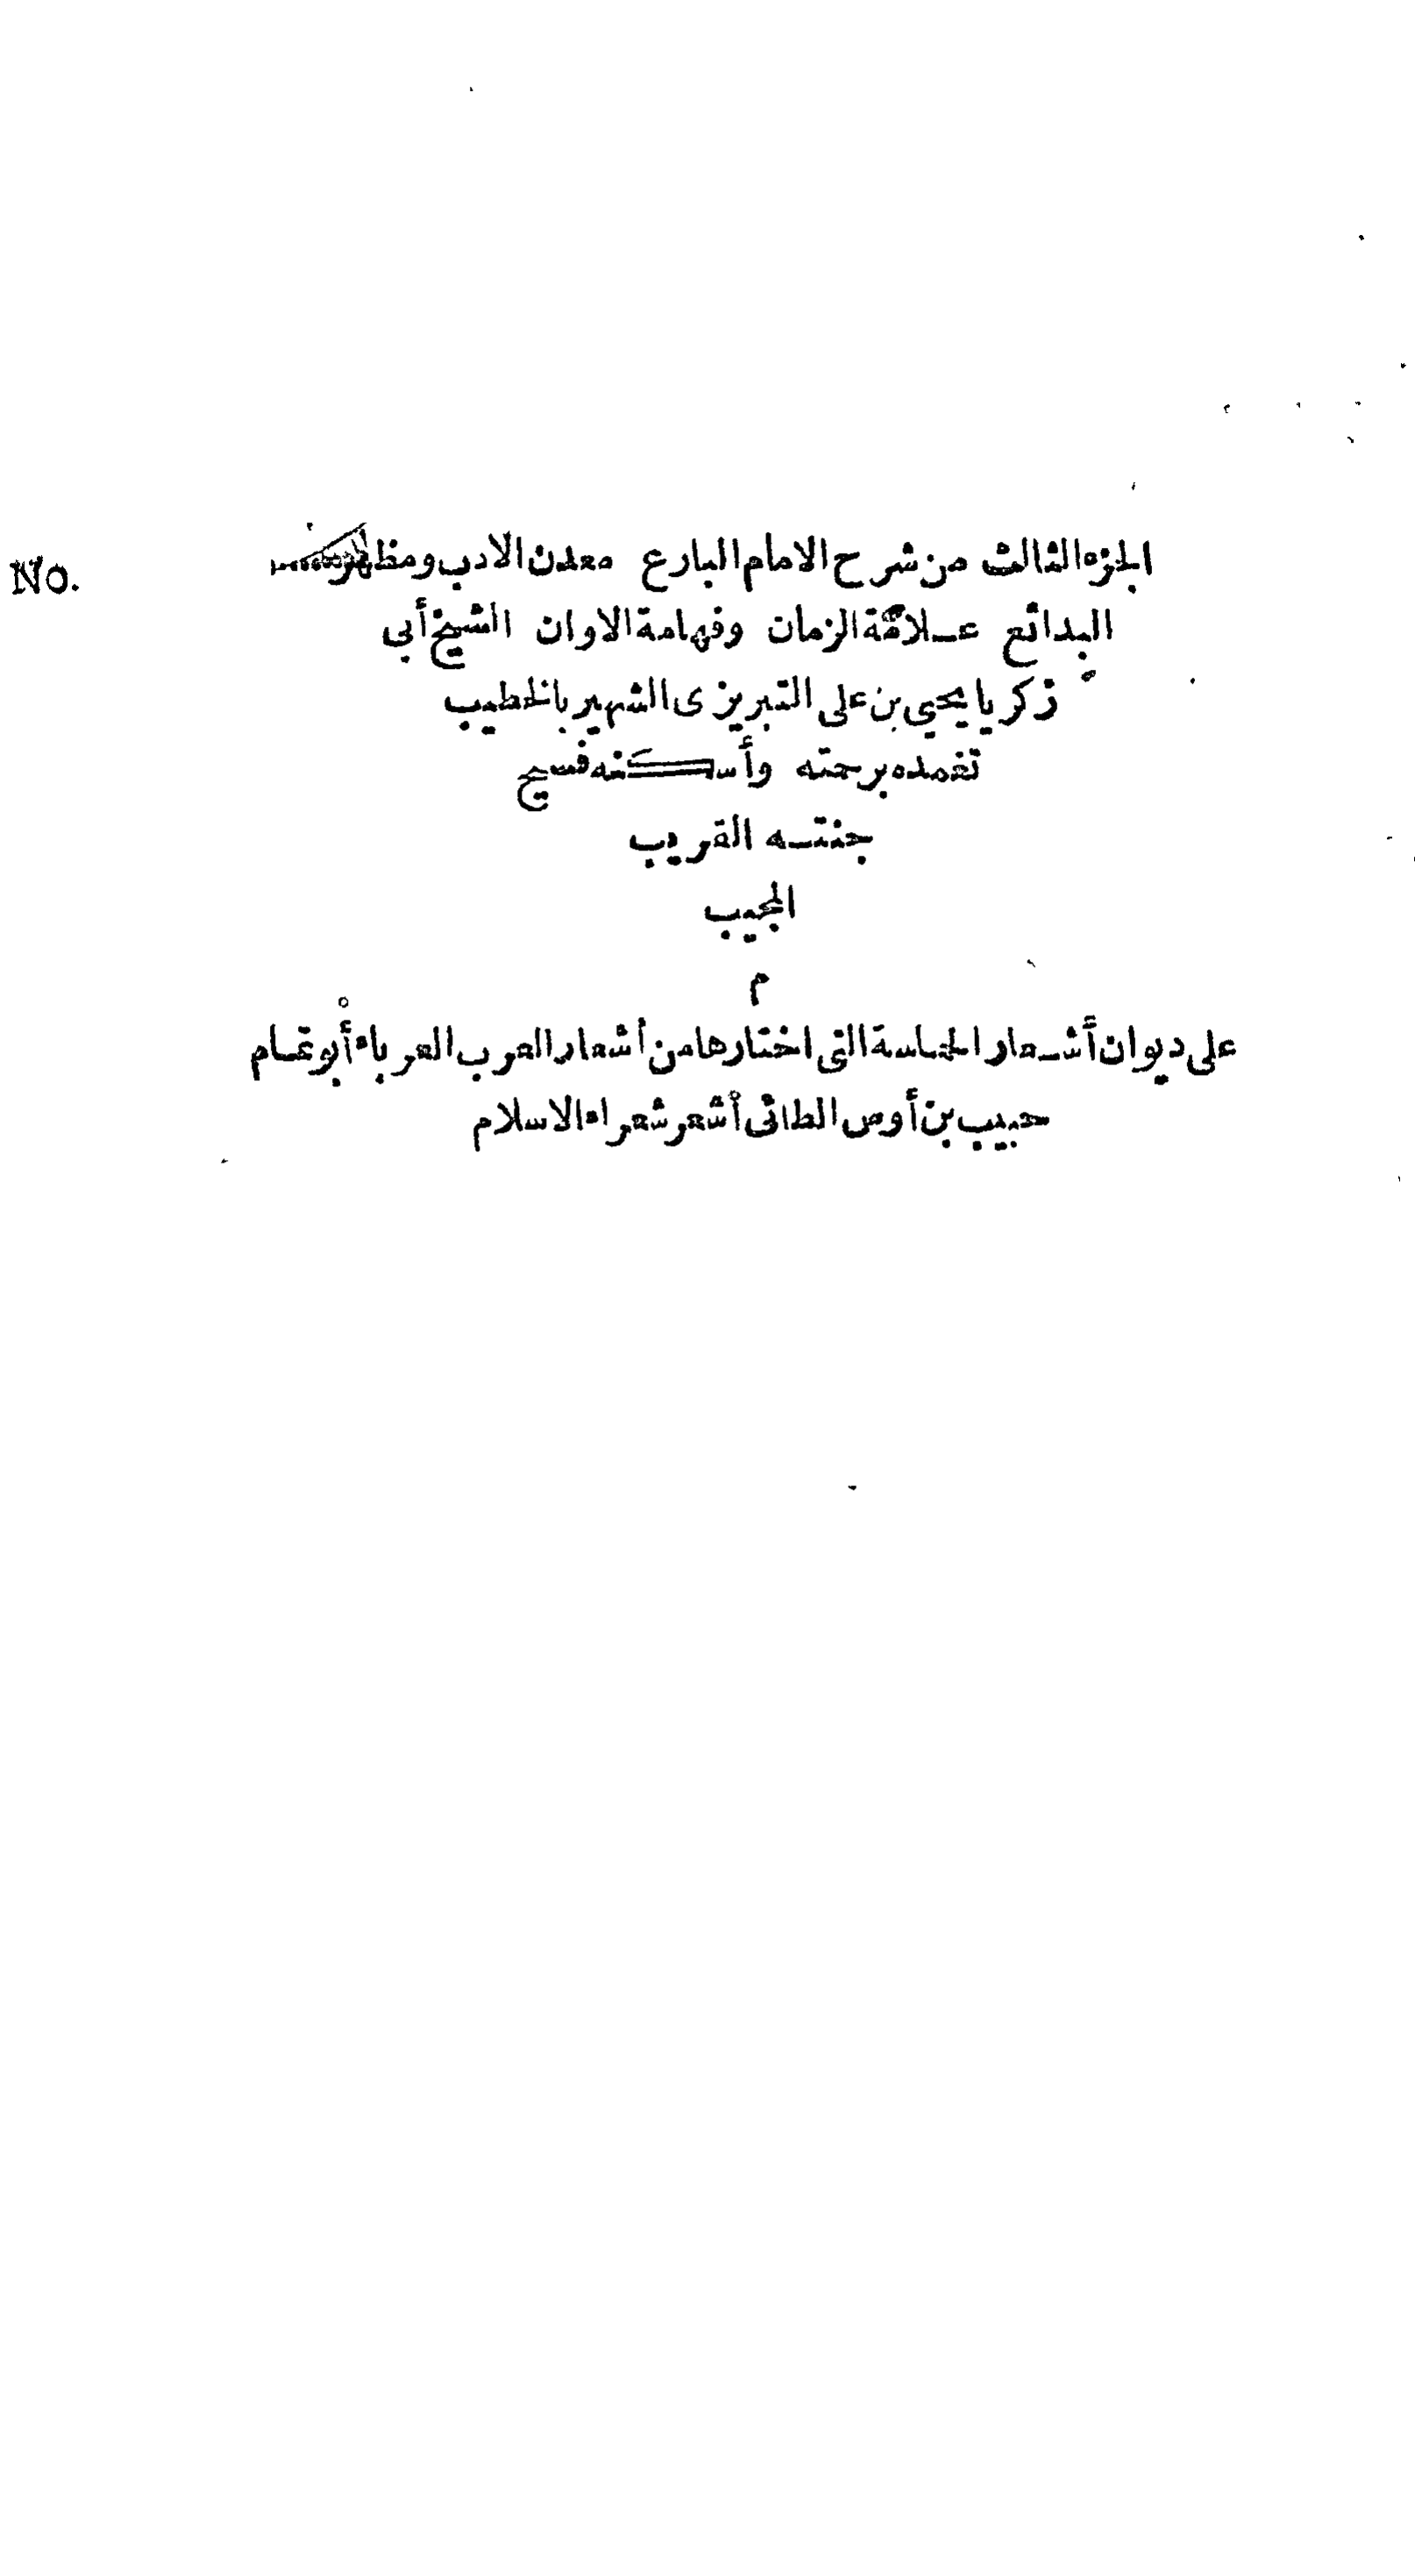 الجزء الثالث من شرح الامام البارع معدن الادب ومظهر
No.
البدائع علامة الزمان وفهامة الاوان الشيخ أبى
زكريا يحيى بن على التبريزى الشهير بالخطيب
تغمده برحمته وأسكنه فسيح
جنته القريب
المجيب
م
على ديوان أشعار الحماسة التى اختارها من أشعار العرب العرباء أبو تمام
حبيب بن أوس الطائى أشعر شعراء الاسلام